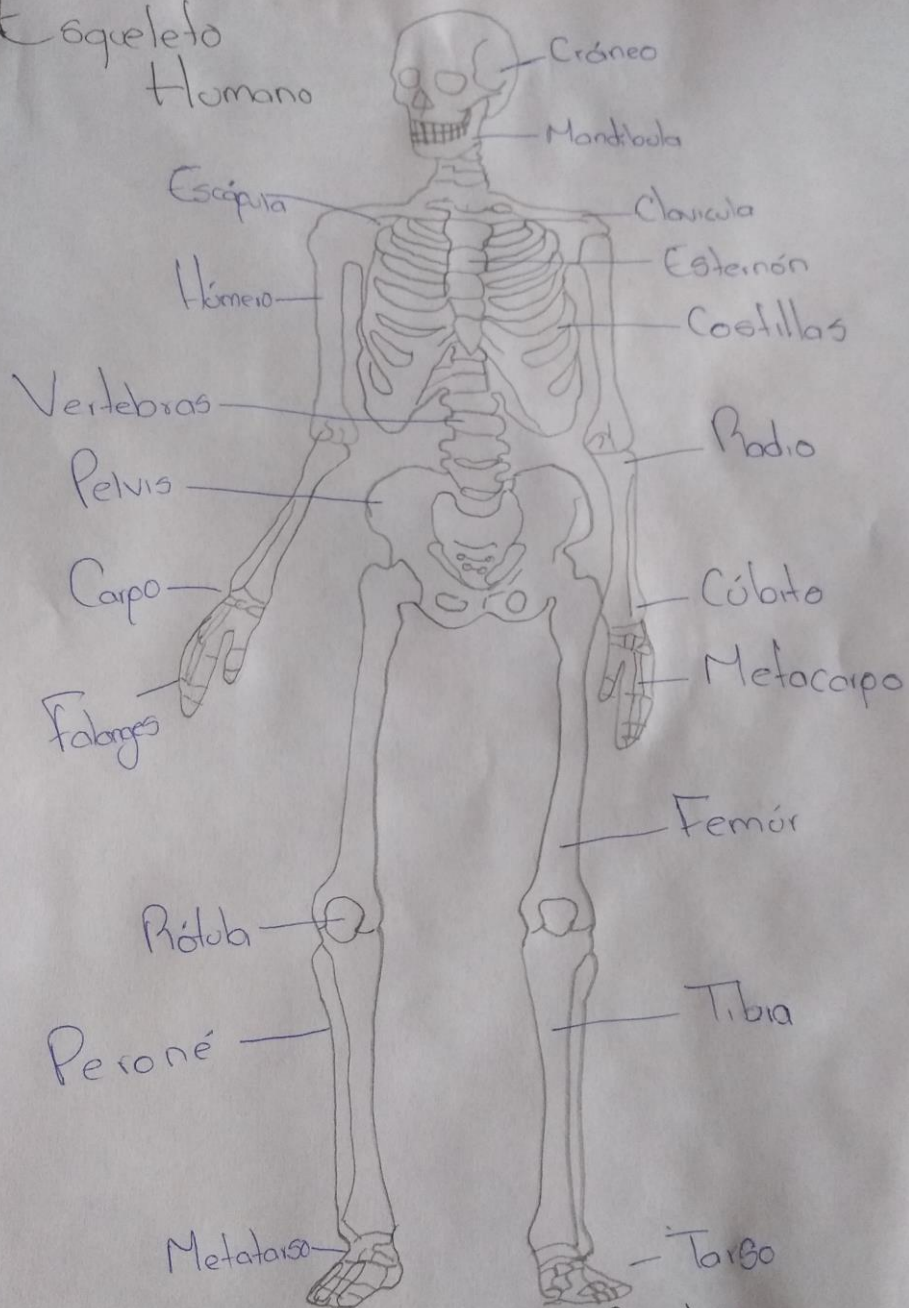 Esqueleto
Humano
Cráneo
Mandibula
Escápula
Clavicula
Esternón
Húmero
Costillas
Vertebras
Radio
Pelvis
Carpo
Cúbito
Metacarpo
Falanges
Femúr
Rótula
Tibia
Peroné
Metatarso
Tarso